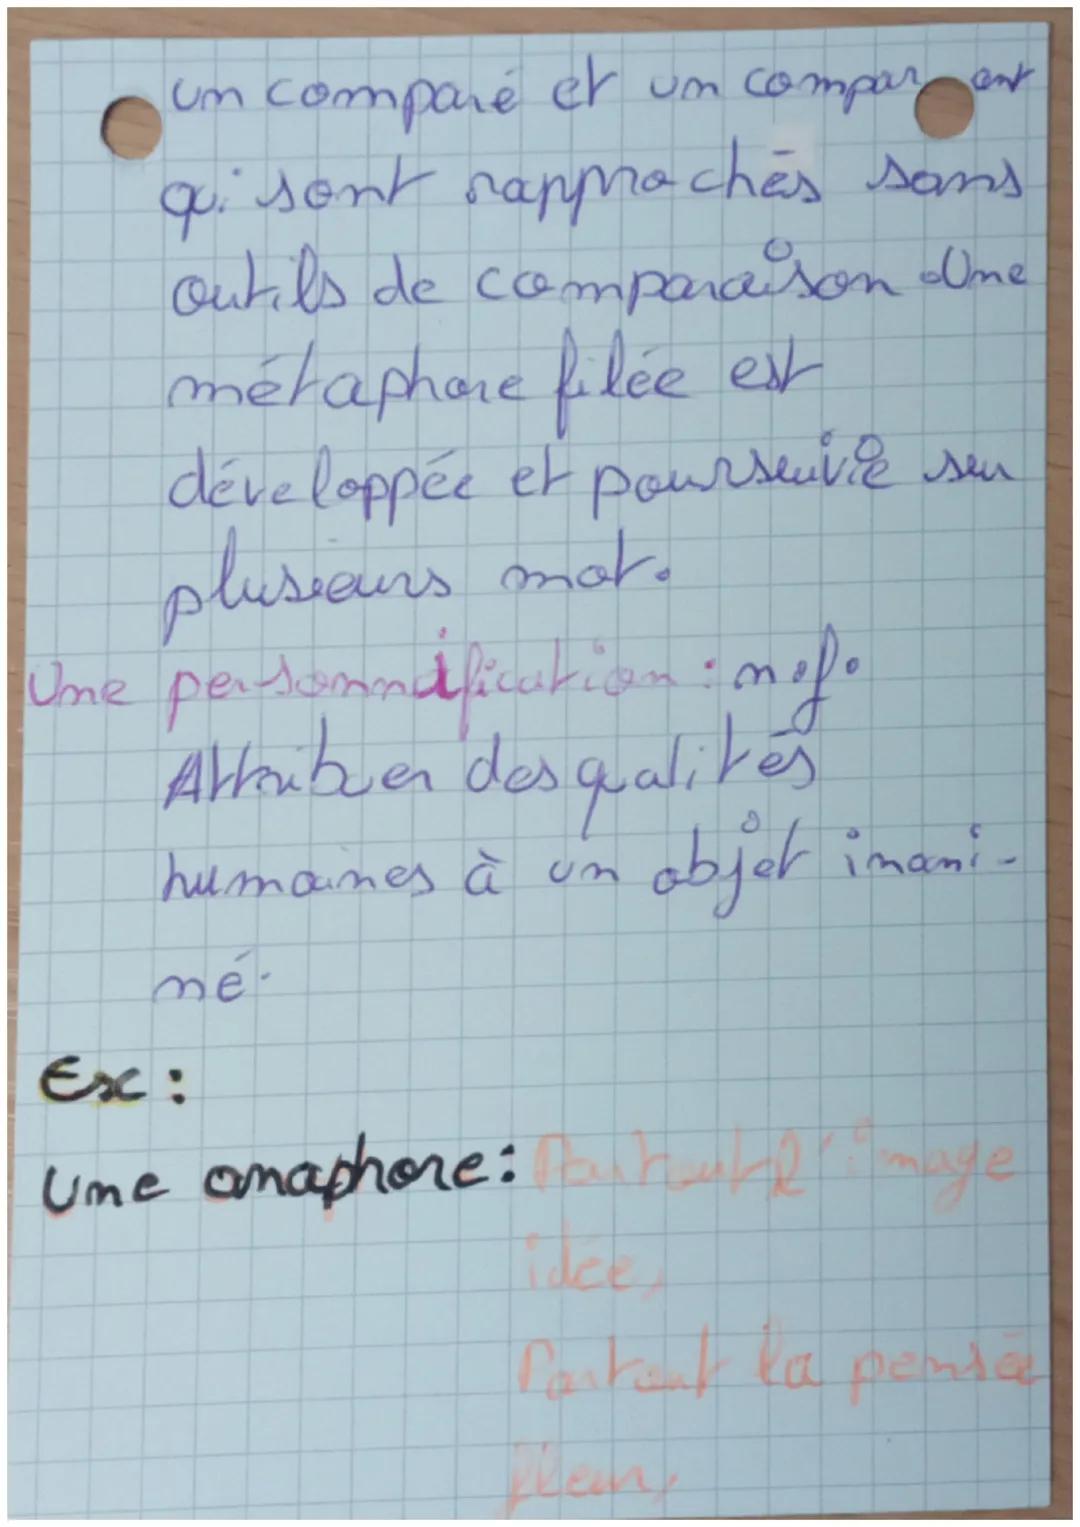 un comparé et un comparant
qui sont rapprochés sans
outils de comparaison. Une
métaphore filée est
développée et pourseuivie seur
plusieurs mot.
Une personnification : n.f.
Attribuer des qualités
humaines à un objet inani-
né.
Ex :
Une anaphore : Partout l'image
idée,
Partout la pensée
fleur,